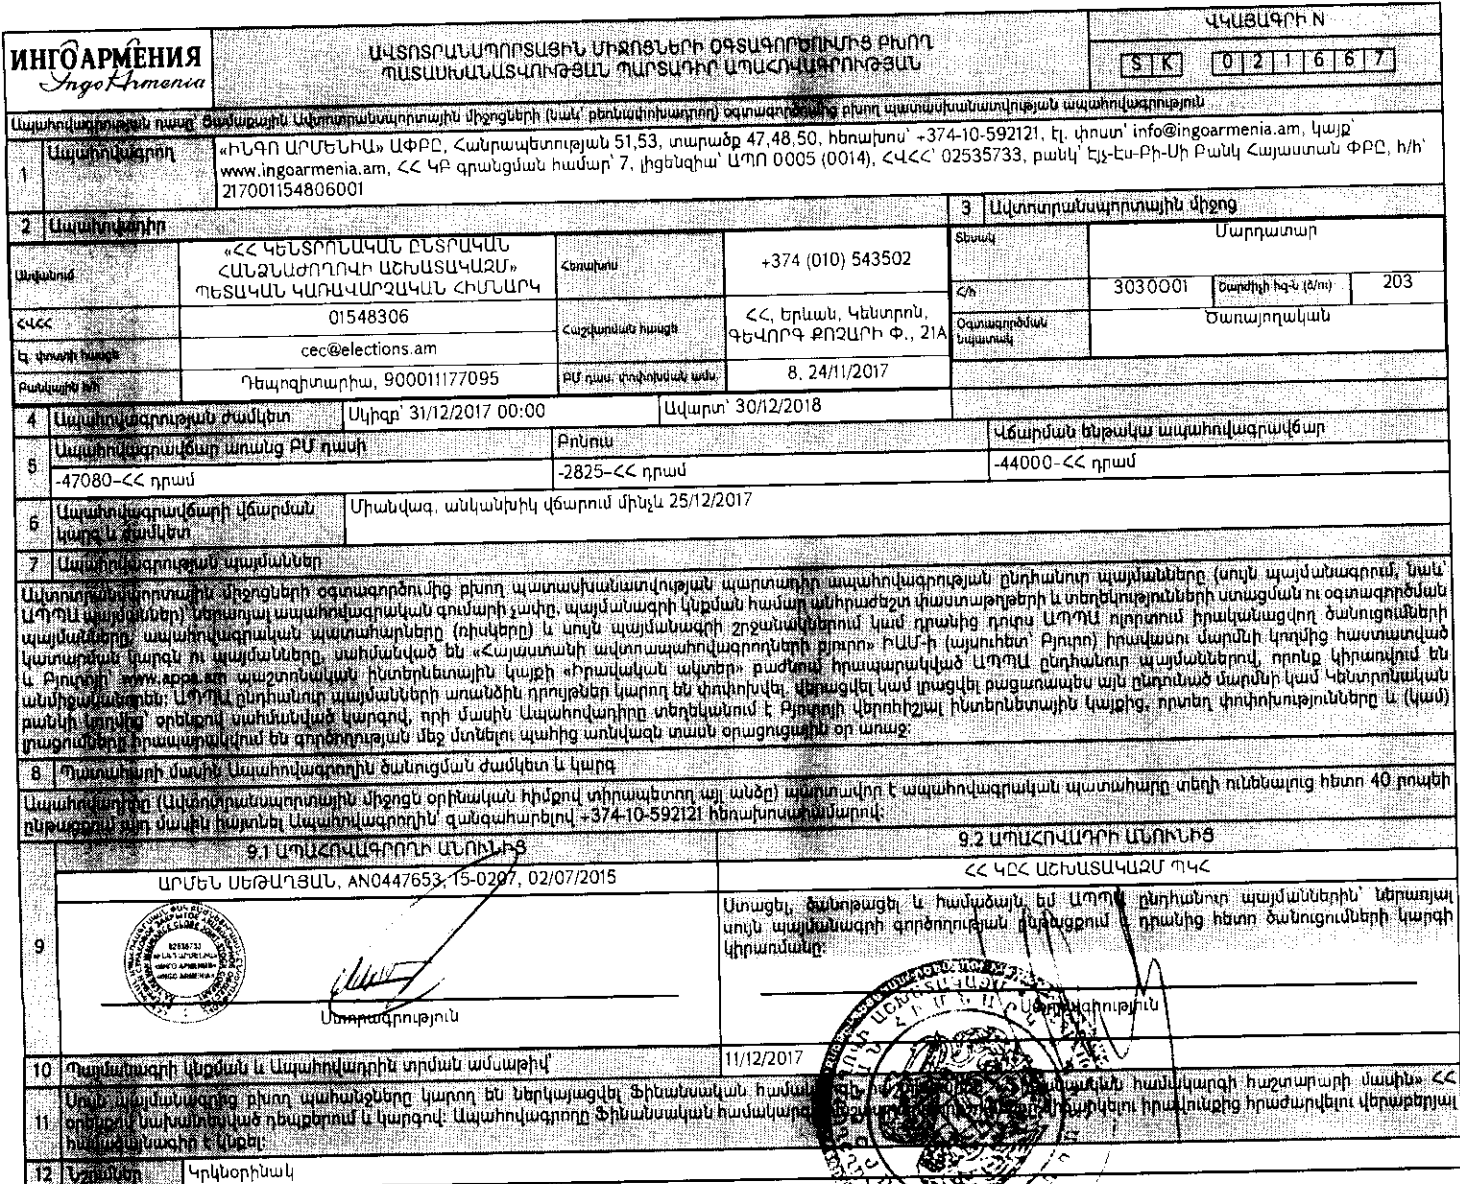 ИНГО АРМЕНИЯ
Ingo Armenia
ԱՎՏՈՏՐԱՆՍՊՈՐՏԱՅԻՆ ՄԻՋՈՑՆԵՐԻ ՕԳՏԱԳՈՐԾՈՒՄԻՑ ԲԽՈՂ
ՊԱՏԱՍԽԱՆԱՏՎՈՒԹՅԱՆ ՊԱՐՏԱԴԻՐ ԱՊԱՀՈՎԱԳՐՈՒԹՅԱՆ
ՎԿԱՅԱԳՐԻ N
SK 021667
Ապահովագրության դասը՝ Ցամաքային Ավտոտրանսպորտային միջոցների (նաև՝ բեռնափոխադրող) օգտագործումից բխող պատասխանատվության ապահովագրություն
1 Ապահովագրող
«ԻՆԳՈ ԱՐՄԵՆԻԱ» ԱՓԲԸ, Հանրապետության 51,53, տարածք 47,48,50, հեռախոս՝ +374-10-592121, էլ. փոստ՝ info@ingoarmenia.am, կայք՝
www.ingoarmenia.am, ՀՀ ԿԲ գրանցման համար՝ 7, լիցենզիա՝ ԱՊՈ 0005 (0014), ՀՎՀՀ՝ 02535733, բանկ՝ Էյչ-Էս-Բի-Սի Բանկ Հայաստան ՓԲԸ, հ/հ՝
217001154806001
2 Ապահովադիր
3 Ավտոտրանսպորտային միջոց
Անվանում
«ՀՀ ԿԵՆՏՐՈՆԱԿԱՆ ԸՆՏՐԱԿԱՆ
ՀԱՆՁՆԱԺՈՂՈՎԻ ԱՇԽԱՏԱԿԱԶՄ»
ՊԵՏԱԿԱՆ ԿԱՌԱՎԱՐՉԱԿԱՆ ՀԻՄՆԱՐԿ
Հեռախոս
+374 (010) 543502
Տեսակ
Մարդատար
Հ/հ
3030001
Շարժիչի հզ-ն (ձ/ու)
203
ՀՎՀՀ
01548306
Հաշվառման հասցե
ՀՀ, Երևան, Կենտրոն,
ԳԵՎՈՐԳ ՔՈՉԱՐԻ Փ., 21Ա
Օգտագործման
նպատակ
Ծառայողական
Էլ. փոստի հասցե
cec@elections.am
Բանկային հ/հ
Դեպոզիտարիա, 900011177095
ԲՄ դաս. փոփոխման ամս.
8, 24/11/2017
4 Ապահովագրության ժամկետ
Սկիզբ՝ 31/12/2017 00:00
Ավարտ՝ 30/12/2018
5 Ապահովագրավճար առանց ԲՄ դասի
Բոնուս
Վճարման ենթակա ապահովագրավճար
-47080-ՀՀ դրամ
-2825-ՀՀ դրամ
-44000-ՀՀ դրամ
6 Ապահովագրավճարի վճարման
կարգ և ժամկետ
Միանվագ, անկանխիկ վճարում մինչև 25/12/2017
7 Ապահովագրության պայմաններ
Ավտոտրանսպորտային միջոցների օգտագործումից բխող պատասխանատվության պարտադիր ապահովագրության ընդհանուր պայմանները (սույն պայմանագրում, նաև՝
ԱՊՊԱ պայմաններ) ներառյալ ապահովագրական գումարի չափը, պայմանագրի կնքման համար անհրաժեշտ փաստաթղթերի և տեղեկությունների ստացման ու օգտագործման
պայմանները, ապահովագրական պատահարները (ռիսկերը) և սույն պայմանագրի շրջանակներում կամ դրանից դուրս ԱՊՊԱ ոլորտում իրականացվող ծանուցումների
կատարման կարգն ու պայմանները, սահմանված են «Հայաստանի ավտոապահովագրողների բյուրո» ԻԱՄ-ի (այսուհետ՝ Բյուրո) իրավասու մարմնի կողմից հաստատված
և Բյուրոյի՝ www.appa.am պաշտոնական ինտերնետային կայքի «Իրավական ակտեր» բաժնում հրապարակված ԱՊՊԱ ընդհանուր պայմաններով, որոնք կիրառվում են
անմիջականորեն: ԱՊՊԱ ընդհանուր պայմանների առանձին դրույթներ կարող են փոփոխվել, վերացվել կամ լրացվել բացառապես այն ընդունած մարմնի կամ Կենտրոնական
բանկի կողմից՝ օրենքով սահմանված կարգով, որի մասին Ապահովադիրը տեղեկանում է Բյուրոյի վերոհիշյալ ինտերնետային կայքից, որտեղ փոփոխությունները և (կամ)
լրացումները հրապարակվում են գործողության մեջ մտնելու պահից առնվազն տասն օրացուցային օր առաջ:
8 Պատահարի մասին Ապահովագրողին ծանուցման ժամկետ և կարգ
Ապահովադիրը (Ավտոտրանսպորտային միջոցն օրինական հիմքով տիրապետող այլ անձը) պարտավոր է ապահովագրական պատահարը տեղի ունենալուց հետո 40 րոպեի
ընթացքում այդ մասին հայտնել Ապահովագրողին՝ զանգահարելով +374-10-592121 հեռախոսահամարով:
9
9.1 ԱՊԱՀՈՎԱԳՐՈՂԻ ԱՆՈՒՆԻՑ
9.2 ԱՊԱՀՈՎԱԴՐԻ ԱՆՈՒՆԻՑ
ԱՐՄԵՆ ՍԵԹԱՂՅԱՆ, AN0447653, 15-0207, 02/07/2015
ՀՀ ԿԸՀ ԱՇԽԱՏԱԿԱԶՄ ՊԿՀ
Ստացել, ծանոթացել և համաձայն եմ ԱՊՊԱ ընդհանուր պայմաններին՝ ներառյալ
սույն պայմանագրի գործողության ընթացքում և դրանից հետո ծանուցումների կարգի
կիրառմանը:
Ստորագրություն
Ստորագրություն
10 Պայմանագրի կնքման և Ապահովադրին տրման ամսաթիվ՝
11/12/2017
11 Սույն պայմանագրից բխող պահանջները կարող են ներկայացվել Ֆինանսական համակարգի համակարգի հաշտարարի մասին» ՀՀ
օրենքով նախատեսված դեպքերում և կարգով: Ապահովագրողը Ֆինանսական համակարգ իրավունքից հրաժարվելու վերաբերյալ
համաձայնագիր է կնքել:
12 Նշումներ
Կրկնօրինակ